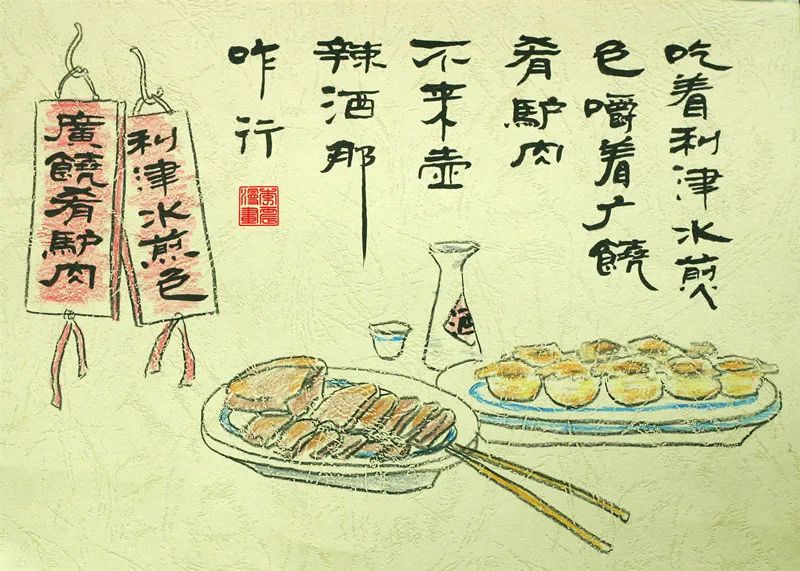 吃着利津水煎
包嚼着广饒
肴馿肉
不来壶
辣酒那
咋行
李震
漫畫
利津水煎包
廣饒肴馿肉
酒